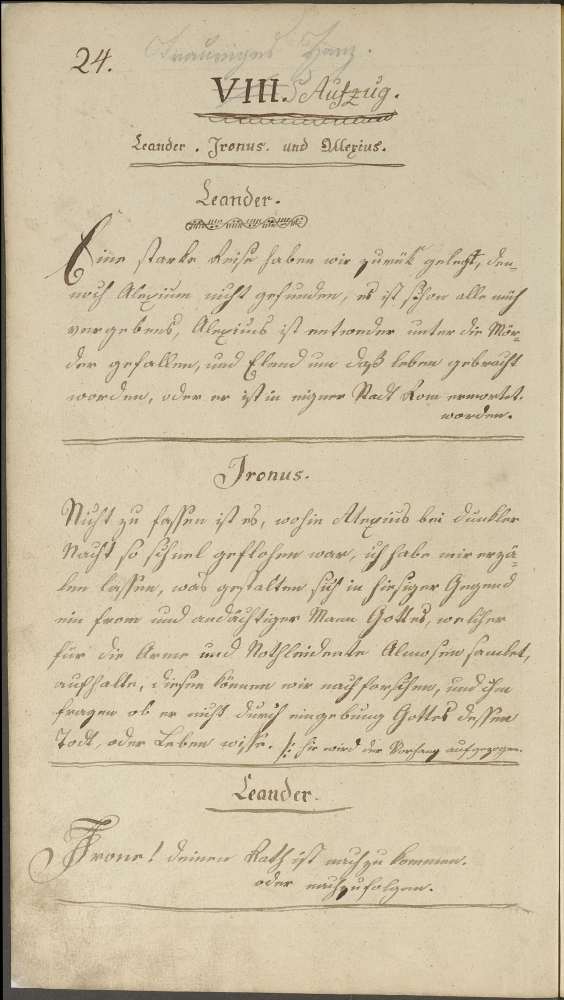 24.
VIII. Aufzug.
Leander. Jronus. und Allexius.
Leander.
Eine starke Reise haben wir zurük gelegt, den=
noch Alexium nicht gefunden, es ist schon alle müh
vergebens, Alexius ist entweder unter die Mör=
der gefallen, und Elend um daß leben gebracht
worden, oder er ist in eigner Stadt Rom ermortet.
worden.
Jronus.
Nicht zu fassen ist es, wohin Alexius bei dunkler
Nacht so schnel geflohen war, ich habe mir erzä=
len lassen, was gestalten sich in hiesiger Gegend
ein from und andächtiger Mann Gottes, welcher
für die Arme und Nothleidente Almosen samlet,
aufhalte, diesen können wir nachforschen, und ihn
fragen ob er nicht durch eingebung Gottes dessen
Todt, oder Leben wisse. /: hir wird der Vorhang aufgezogen.
Leander.
Jrone! deinen Rath ist nachzukommen.
oder nachzufolgen.